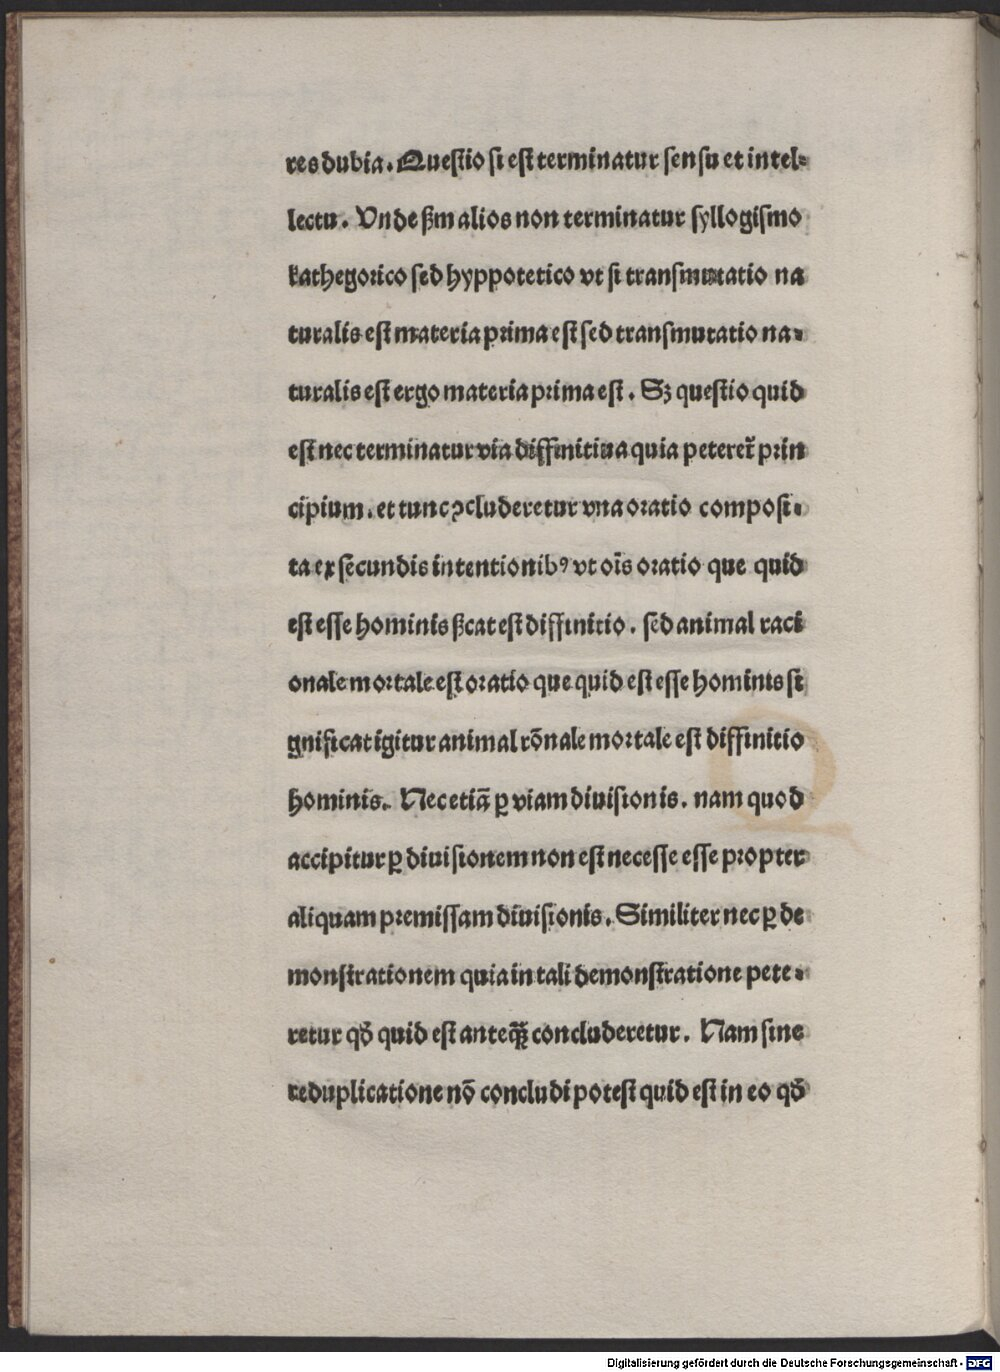 res dubia. Questio si est terminatur sensu et intel⸗
lectu. Vnde ßm alios non terminatur syllogismo
kathegorico sed hyppotetico vt si transmutatio na
turalis est materia prima est sed transmutatio na⸗
turalis est ergo materia prima est. Sꝫ questio quid
est nec terminatur via diffinitiua quia petereť prin
cipium. et tunc ꝯcluderetur vna oratio composi⸗
ta ex secundis intentionibꝰ vt oīs oratio que quid
est esse hominis ßcat est diffinitio. sed animal raci
onale mortale est oratio que quid est esse hominis si
gnificat igitur animal rōnale mortale est diffinitio
hominis. Nec etiā ꝑ viam diuisionis. nam quod
accipitur ꝑ diuisionem non est necesse esse propter
aliquam premissam diuisionis. Similiter nec ꝑ de
monstrationem quia in tali demonstratione pete⸗
retur qđ quid est anteꝙ̃ concluderetur. Nam sine
reduplicatione nō concludi potest quid est in eo qđ
Digitalisierung gefördert durch die Deutsche Forschungsgemeinschaft - DFG